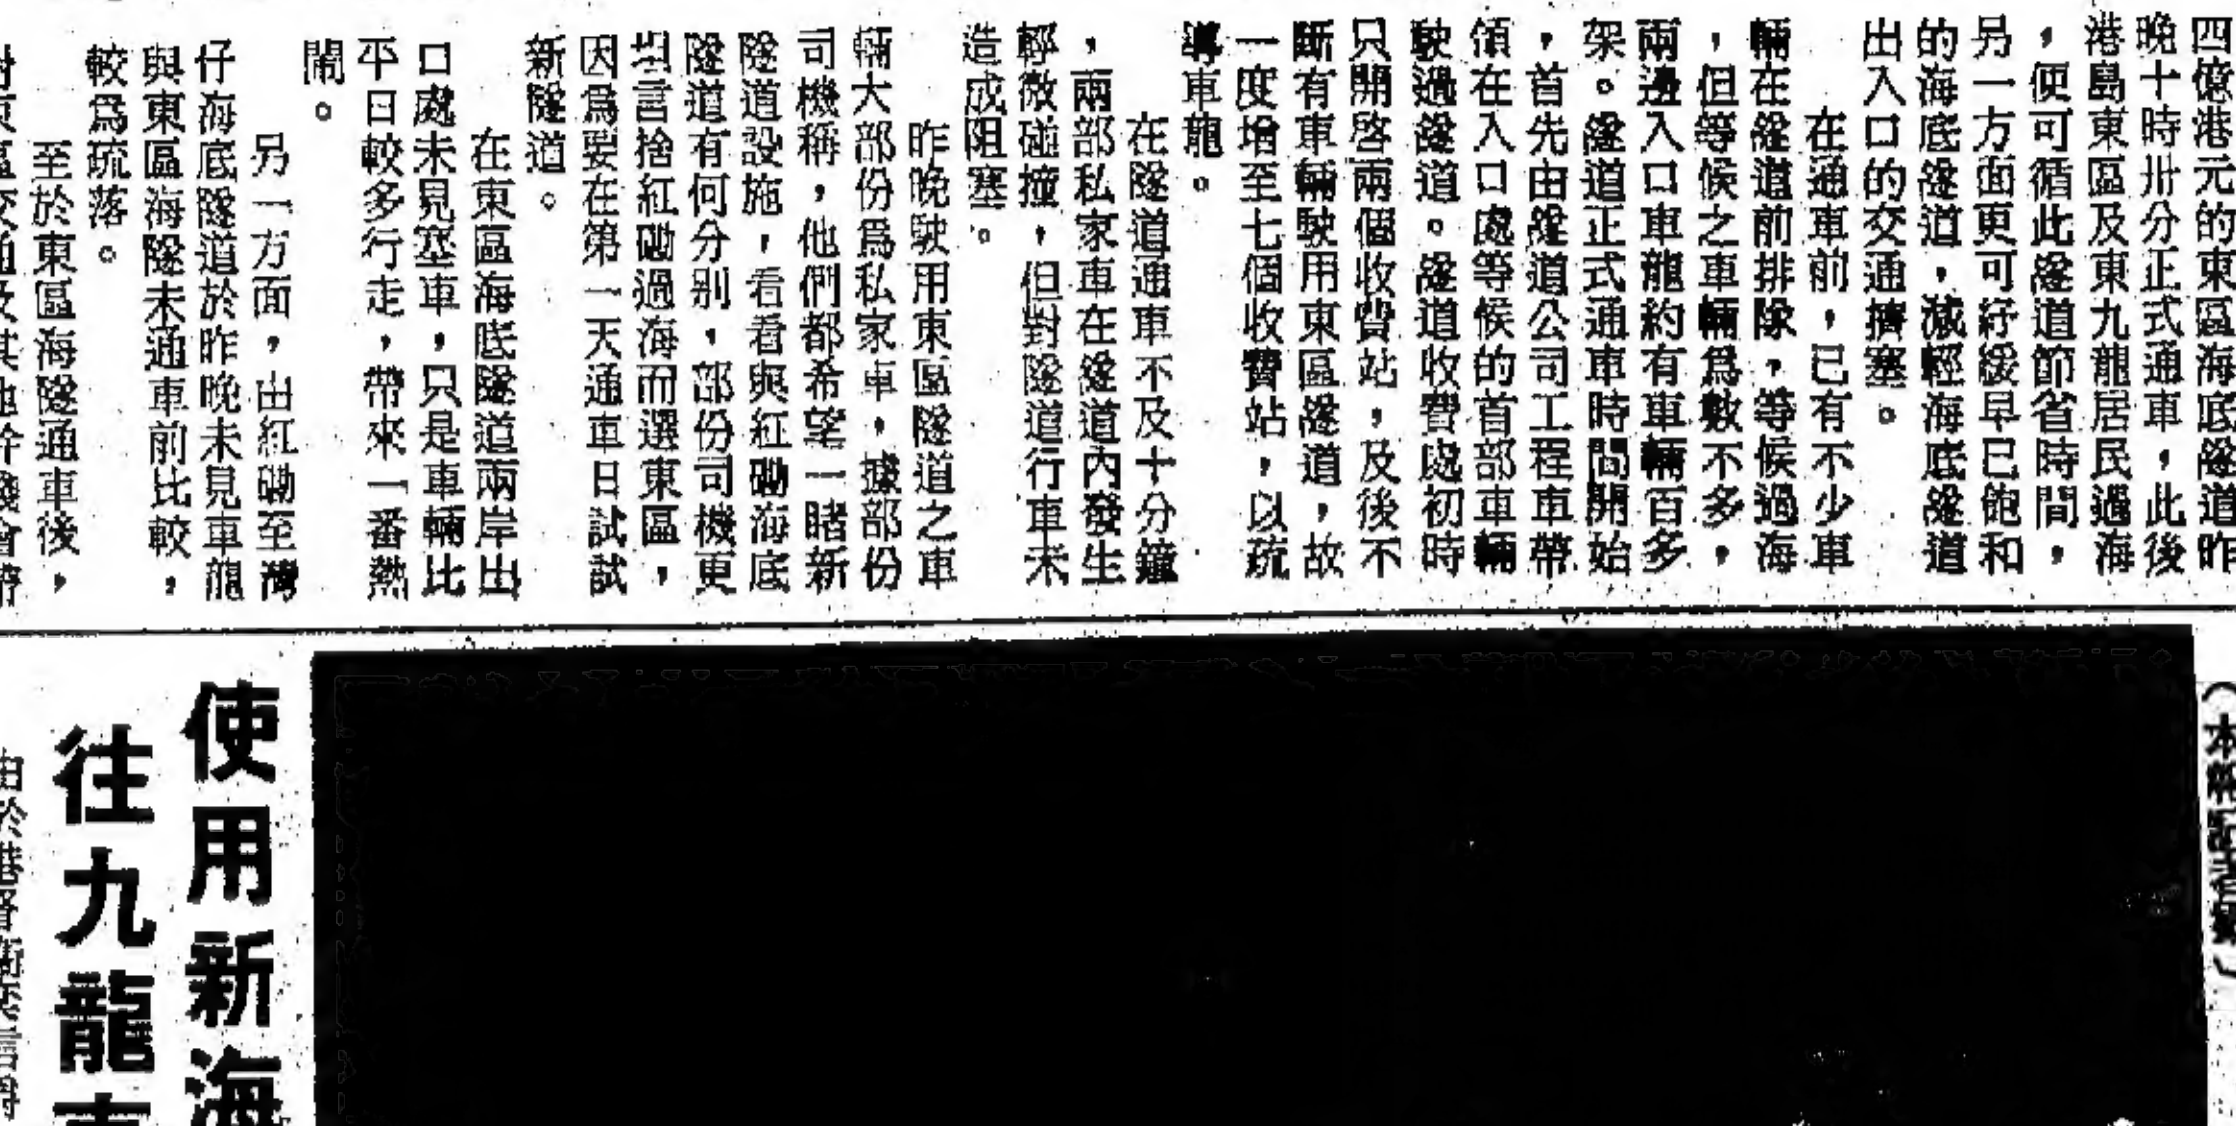 四億港元的東區海底隧道昨
晚十時卅分正式通車，此後
港島東區及東九龍居民過海
，便可循此隧道節省時間，
另一方面更可紓緩早已飽和
的海底隧道，減輕海底隧道
出入口的交通擠塞。
在通車前，已有不少車
輛在隧道前排隊，等候過海
，但等候之車輛為數不多，
兩邊入口車龍約有車輛百多
架。隧道正式通車時間開始
，首先由隧道公司工程車帶
領在入口處等候的首部車輛
駛過隧道。隧道收費處初時
只開啓兩個收費站，及後不
斷有車輛駛用東區隧道，故
一度增至七個收費站，以疏
導車龍。
在隧道通車不及十分鐘
，兩部私家車在隧道內發生
輕微碰撞，但對隧道行車未
造成阻塞。
昨晚駛用東區隧道之車
輛大部份爲私家車，據部份
司機稱，他們都希望一睹新
隧道設施，看看與紅磡海底
隧道有何分別，部份司機更
坦言捨紅磡過海而選東區，
因爲要在第一天通車日試試
新隧道。
在東區海底隧道兩岸出
口處未見塞車，只是車輛比
平日較多行走，帶來一番熱
鬧。
另一方面，由紅磡至灣
仔海底隧道於昨晚未見車龍
與東區海隧未通車前比較，
較爲疏落。
至於東區海隧通車後，
對東區交通及其他幹綫會
（本報記者攝）
使用新海
往九龍東
由於港督衛奕信爵